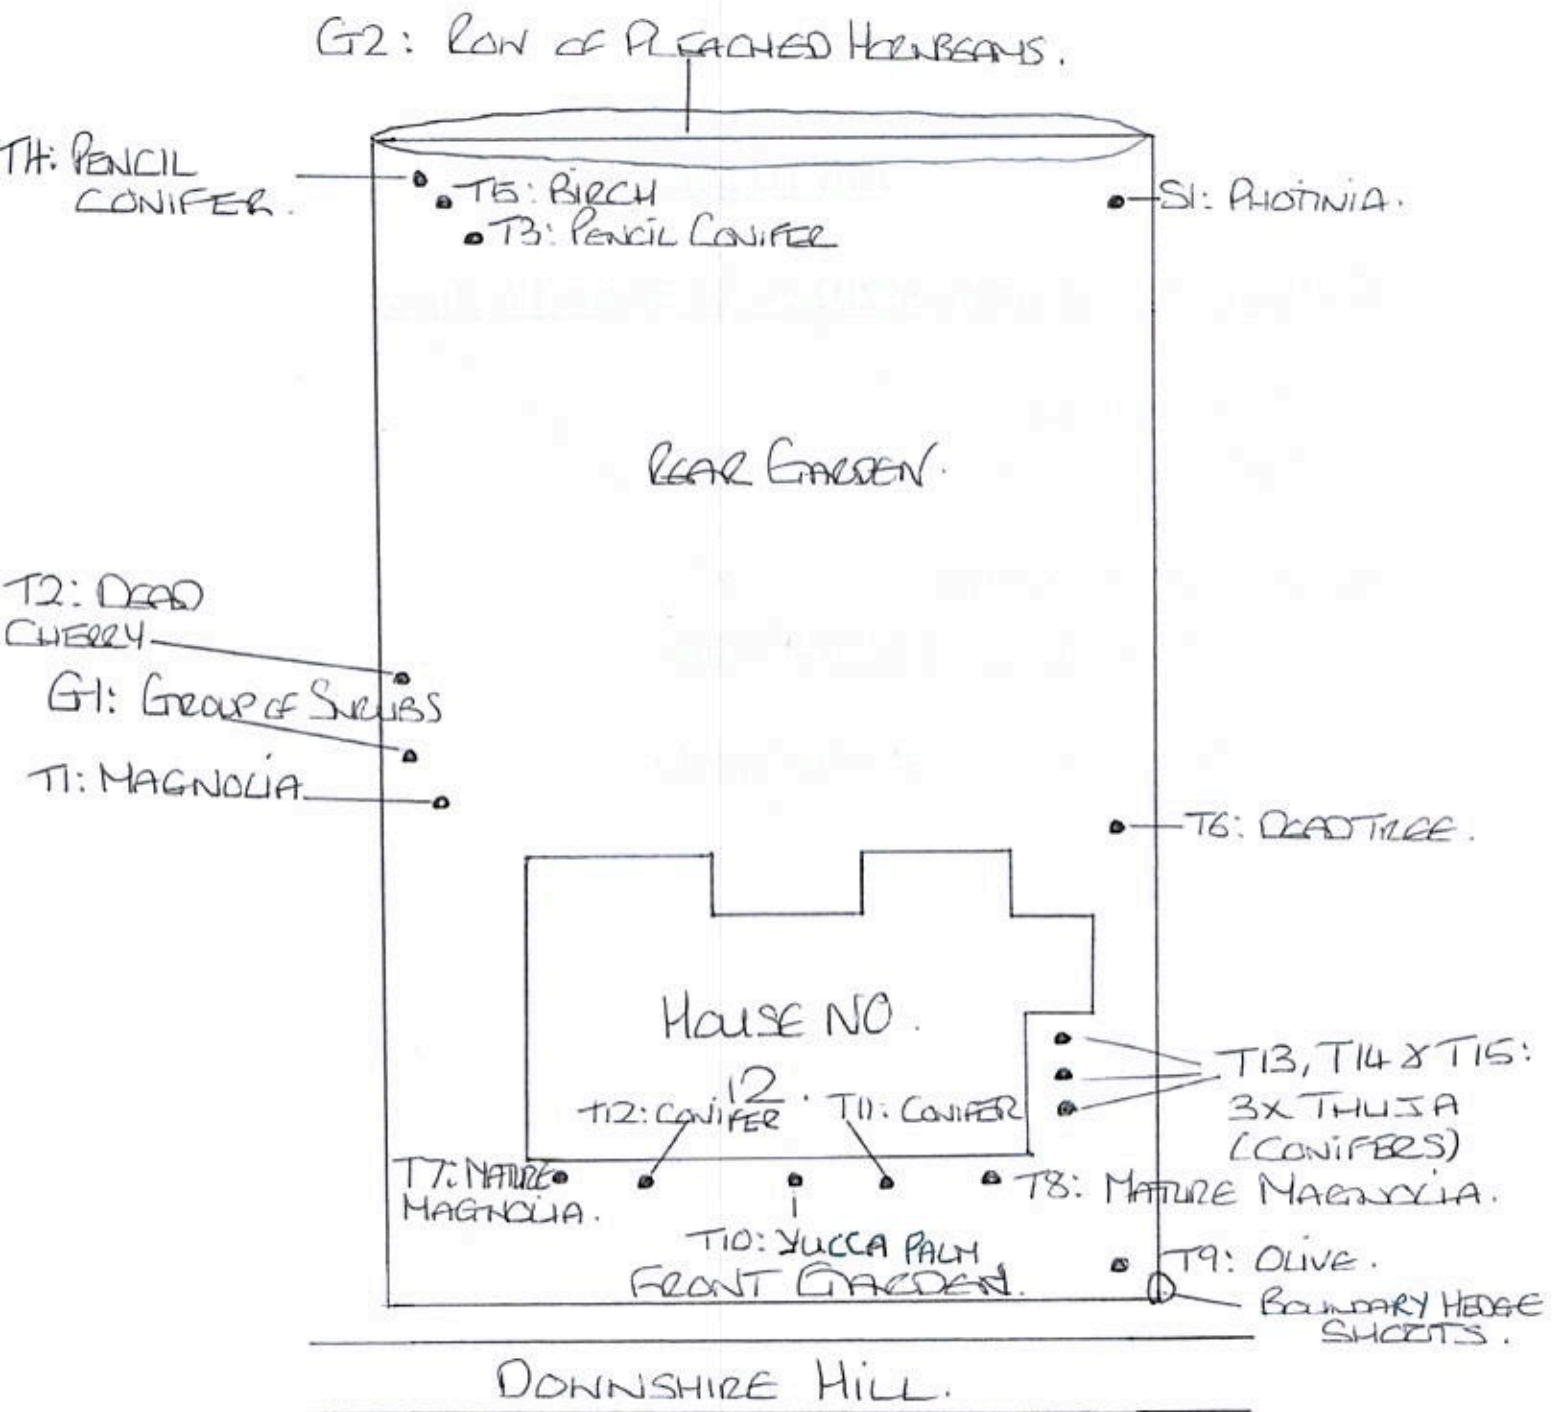 G2: ROW OF PLEACHED HORNBEAMS.
T4: PENCIL
CONIFER.
T5: BIRCH
T3: PENCIL CONIFER
S1: PHOTINIA.
REAR GARDEN.
T2: DEAD
CHERRY
G1: GROUP OF SHRUBS
T1: MAGNOLIA
T6: DEAD TREE.
HOUSE NO.
12.
T12: CONIFER
T11: CONIFER
T13, T14 & T15:
3X THUJA
(CONIFERS)
T7: MATURE
MAGNOLIA.
T8: MATURE MAGNOLIA.
T10: YUCCA PALM
FRONT GARDEN.
T9: OLIVE.
BOUNDARY HEDGE
SHOOTS.
DOWNSHIRE HILL.